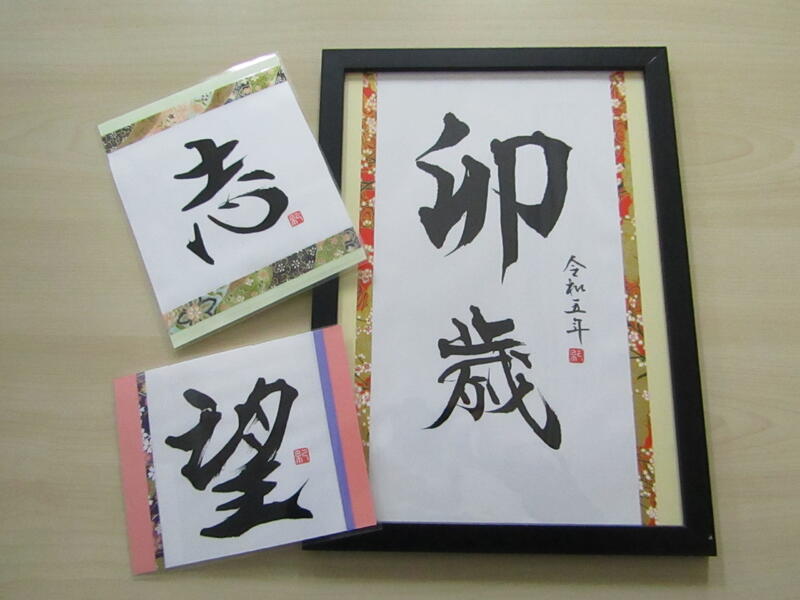 志
望
卯歳
令和五年